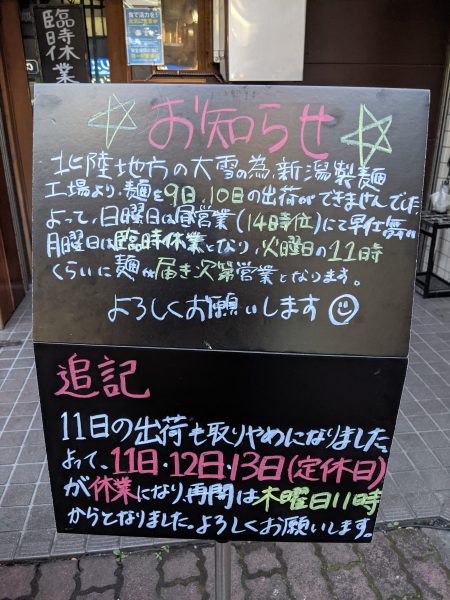 臨時休業
☆お知らせ☆
北陸地方の大雪の為、新潟製麺
工場より、麺を9日、10日の出荷ができませんでした。
よって、日曜日は昼営業(14時位)にて早仕舞い
月曜日は臨時休業となり、火曜日の11時
くらいに麺が届き次第営業となります。
よろしくお願いします
追記
11日の出荷も取りやめになりました。
よって、11日・12日・13日(定休日)
が休業になり、再開は木曜日11時
からとなりました。よろしくお願いします。